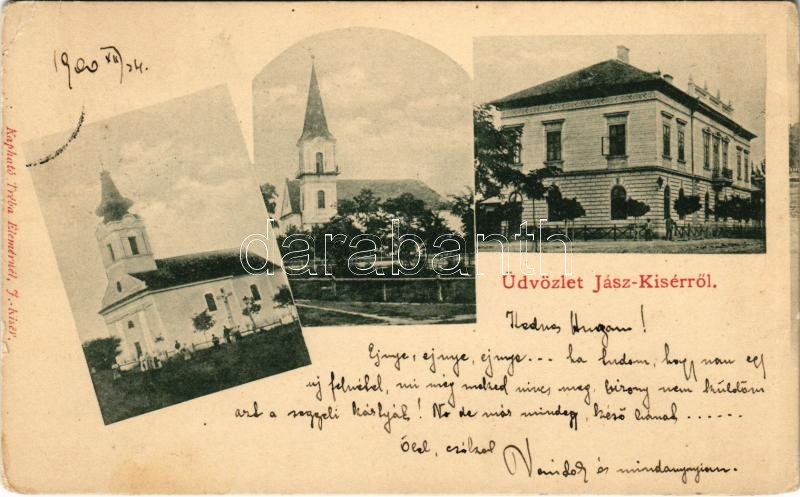 1900 XII/24.
Kapható Tréba Elemérnél, J.-Kisér.
darabanth
Üdvözlet Jász-Kisérről.
Kedves Hugom!
Ejnye, ejnye, ejnye... ha tudom, hogy van egy
uj felvétel, mi még neked nincs meg, bizony nem küldöm
azt a reggeli kártyát! No de már mindegy, késő bánat ......
Ölel, csókol
és mindannyian.